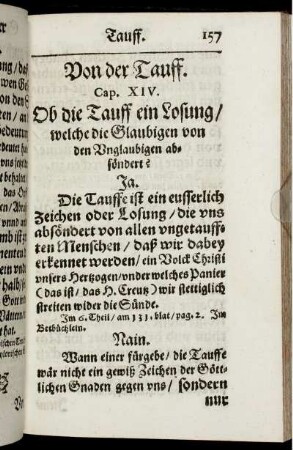 Tauff. 157
Von der Tauff.
Cap. XIV.
Ob die Tauff ein Losung/
welche die Glaubigen von
den Vnglaubigen ab-
söndert?
Ja.
Die Tauffe ist ein eusserlich
Zeichen oder Losung/die vns
absöndert von allen vngetauff-
ten Menschen/ daß wir dabey
erkennet werden/ ein Volck Christi
vnsers Hertzogen/vnder welches Panier
(das ist/ das H. Creutz) wir stettiglich
streiten wider die Sünde.
Im 6. Theil/ am 131. blat/ pag. 2. Im
Betbüchlein.
Nain.
Wann einer fürgebe/ die Tauffe
wär nicht ein gewiß Zeichen der Gött-
lichen Gnaden gegen vns/ sondern
nur